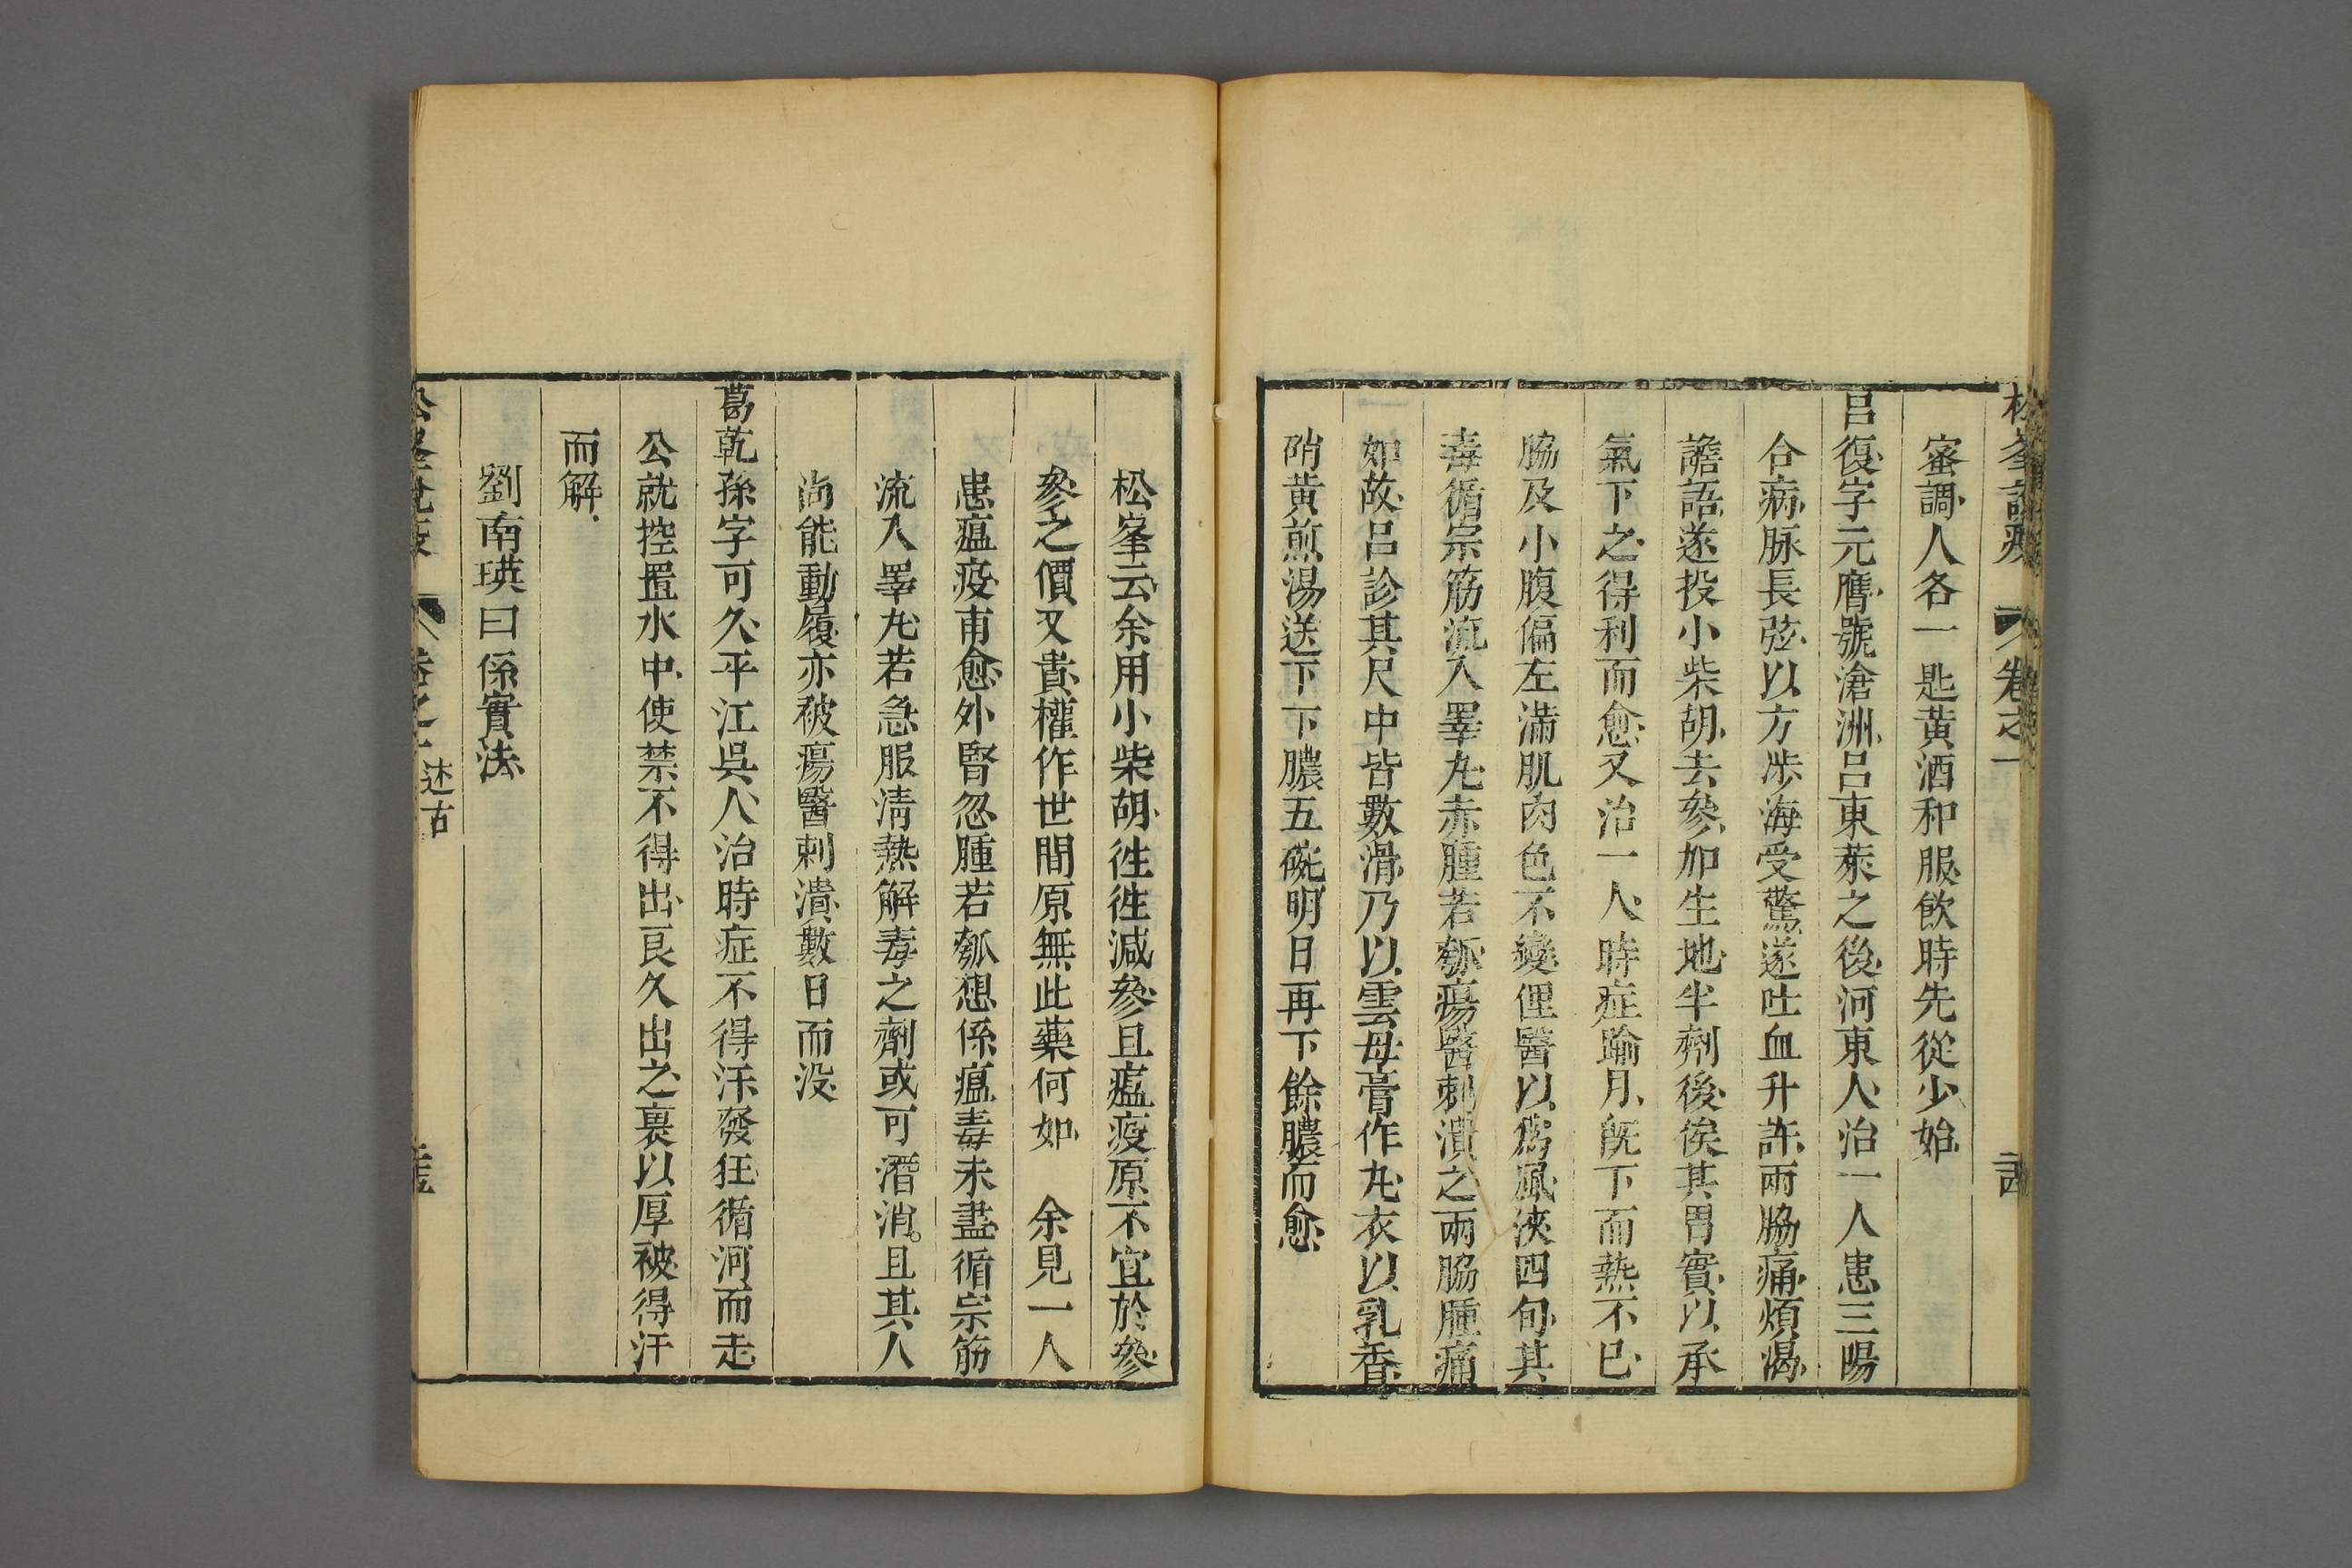 松峯說疫 卷之一
蜜調人各一匙黃酒和服飲時先從少始
呂復字元膺號滄洲呂東萊之後河東人治一人患三陽
合病脉長弦以方涉海受驚遂吐血升許兩脇痛煩渴
譫語遂投小柴胡去參加生地半劑後俟其胃實以承
氣下之得利而愈又治一人時症踰月旣下而熱不巳
脇及小腹偏左滿肌肉色不變俚醫以爲風浹四旬其
毒循宗筋流入睪丸赤腫若瓠瘍醫刺潰之兩脇腫痛
如故呂診其尺中皆數滑乃以雲母膏作丸衣以乳香
硝黃煎湯送下下膿五碗明日再下餘膿而愈
松峯云余用小柴胡徃徃減參且瘟疫原不宜於參
參之價又貴權作世間原無此藥何如　余見一人
患瘟疫甫愈外腎忽腫若瓠想係瘟毒未盡循宗筋
流入睪丸若急服淸熱解毒之劑或可潛消。且其人
尚能動履亦被瘍醫刺潰數日而没
葛乾孫字可久平江吳人治時症不得汗發狂循河而走
公就控置水中使禁不得出良久出之裹以厚被得汗
而解
劉南瑛曰係實法
卷之一 述古